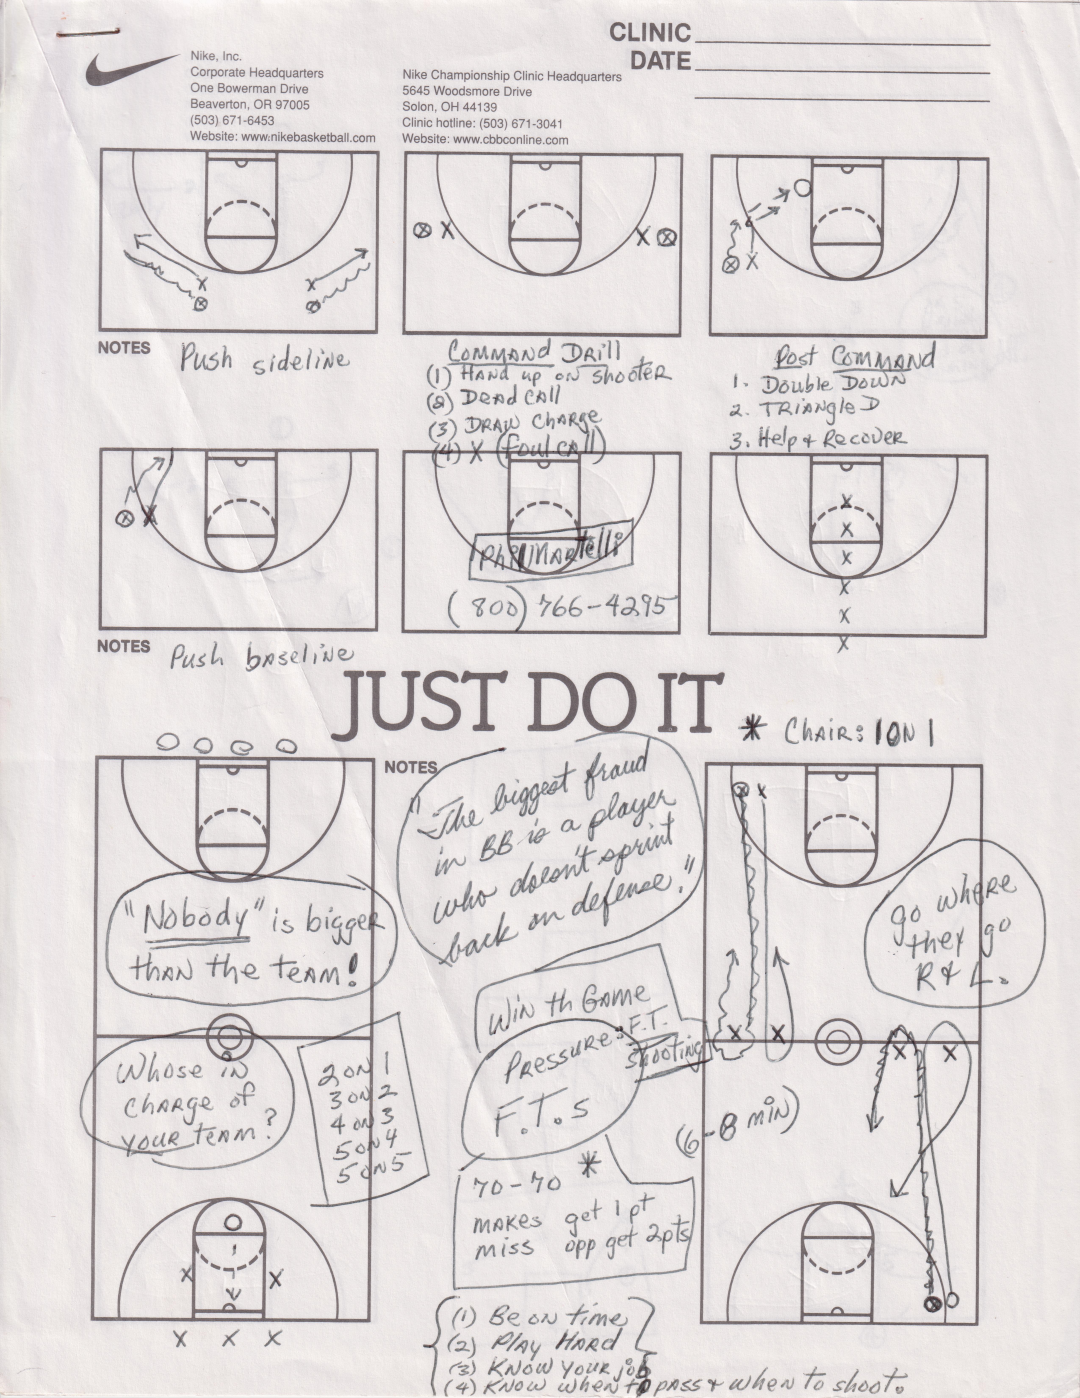 CLINIC
DATE
Nike, Inc.
Corporate Headquarters
One Bowerman Drive
Beaverton, OR 97005
(503) 671-6453
Website: www.nikebasketball.com
Nike Championship Clinic Headquarters
5645 Woodsmore Drive
Solon, OH 44139
Clinic hotline: (503) 671-3041
Website: www.cbbconline.com
NOTES
Push sideline
Command Drill
(1) Hand up on shooter
(2) Dead call
(3) Draw charge
(4) X (Foul call)
Post Command
1. Double Down
2. Triangle D
3. Help + Recover
Phil Martelli
(800) 766-4295
NOTES
Push baseline
JUST DO IT
* Chair: 1 on 1
NOTES
"The biggest fraud
in BB is a player
who doesn't sprint
back on defense."
"Nobody" is bigger
than the team!
go where
they go
R & L.
Win th Game
Pressure: F.T.
shooting
F.T.s
Whose in
charge of
your team?
2 on 1
3 on 2
4 on 3
5 on 4
5 on 5
(6-8 min)
70-70 *
makes get 1 pt
miss opp get 2pts
(1) Be on time
(2) Play Hard
(3) Know your job
(4) Know when to pass + when to shoot.